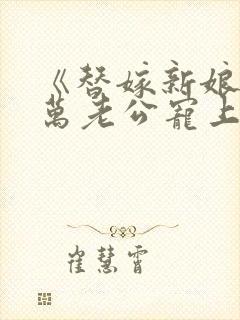 《替嫁新娘
萬老公寵上
崔慧霄